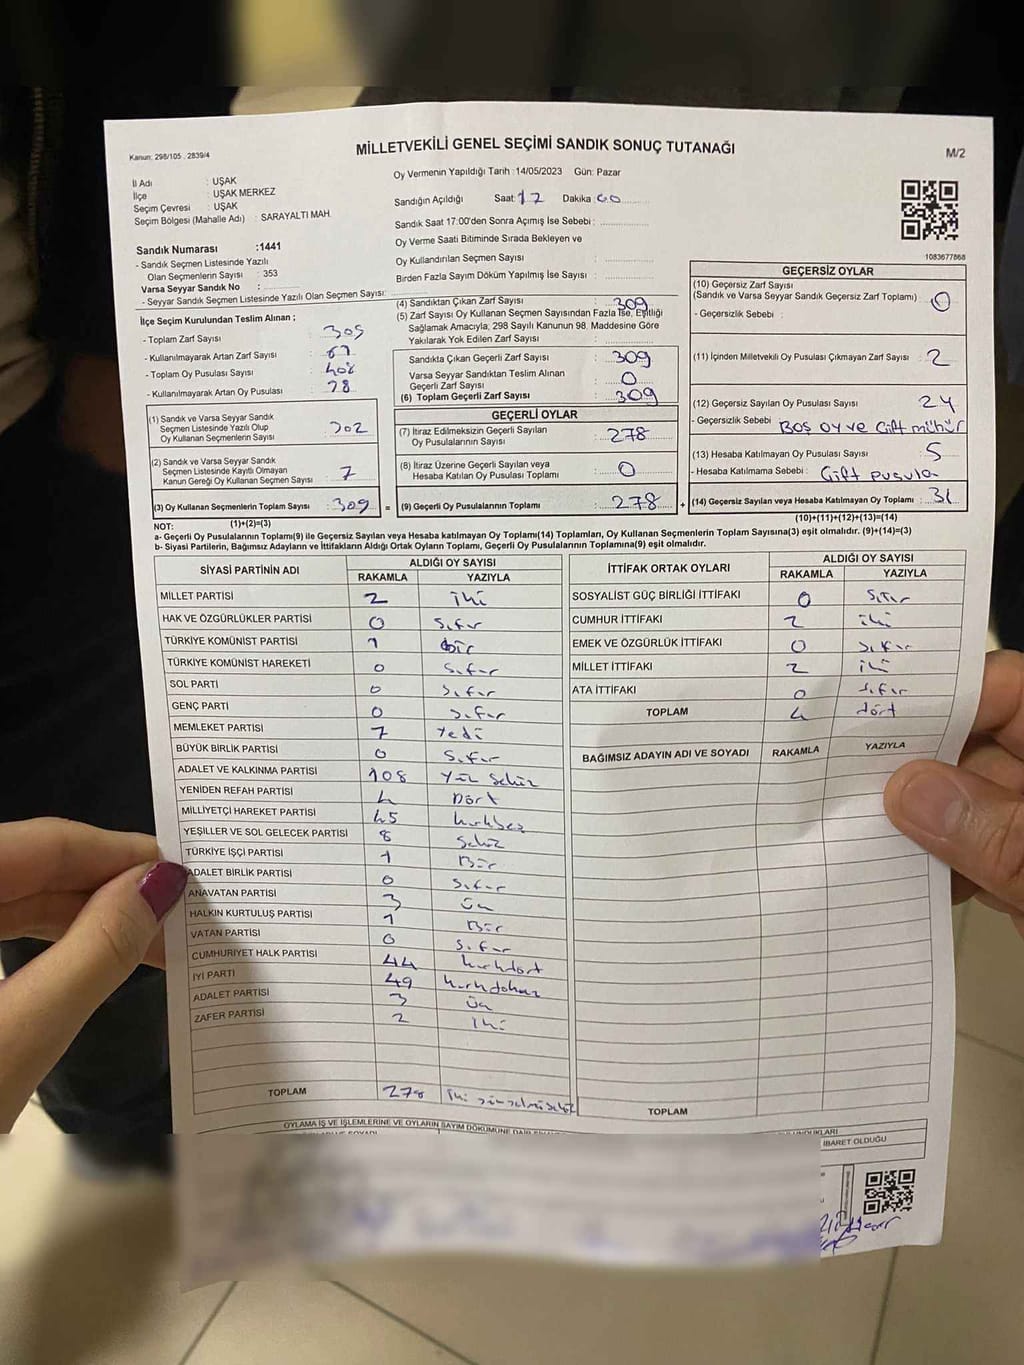 Kanun: 298/105 , 2839/4
MİLLETVEKİLİ GENEL SEÇİMİ SANDIK SONUÇ TUTANAĞI
M/2
İl Adı : UŞAK
İlçe : UŞAK MERKEZ
Seçim Çevresi : UŞAK
Seçim Bölgesi (Mahalle Adı) : SARAYALTI MAH.
Sandık Numarası :1441
- Sandık Seçmen Listesinde Yazılı
Olan Seçmenlerin Sayısı : 353
Varsa Seyyar Sandık No :
- Seyyar Sandık Seçmen Listesinde Yazılı Olan Seçmen Sayısı:
Oy Vermenin Yapıldığı Tarih :14/05/2023 Gün: Pazar
Sandığın Açıldığı Saat: 17 Dakika 00
Sandık Saat 17:00'den Sonra Açımış İse Sebebi :
Oy Verme Saati Bitiminde Sırada Bekleyen ve
Oy Kullandırılan Seçmen Sayısı :
Birden Fazla Sayım Döküm Yapılmış İse Sayısı :
1083677868
İlçe Seçim Kurulundan Teslim Alınan ;
- Toplam Zarf Sayısı :
- Kullanılmayarak Artan Zarf Sayısı :
- Toplam Oy Pusulası Sayısı : 408
- Kullanılmayarak Artan Oy Pusulası :
(1) Sandık ve Varsa Seyyar Sandık
Seçmen Listesinde Yazılı Olup
Oy Kullanan Seçmenlerin Sayısı : 302
(2) Sandık ve Varsa Seyyar Sandık
Seçmen Listesinde Kayıtlı Olmayan
Kanun Gereği Oy Kullanan Seçmen Sayısı : 7
(3) Oy Kullanan Seçmenlerin Toplam Sayısı : 309 =
(1)+(2)=(3)
(4) Sandıktan Çıkan Zarf Sayısı : 309
(5) Zarf Sayısı Oy Kullanan Seçmen Sayısından Fazla İse, Eşitliği
Sağlamak Amacıyla, 298 Sayılı Kanunun 98. Maddesine Göre
Yakılarak Yok Edilen Zarf Sayısı :
Sandıkta Çıkan Geçerli Zarf Sayısı : 309
Varsa Seyyar Sandıktan Teslim Alınan
Geçerli Zarf Sayısı : 0
(6) Toplam Geçerli Zarf Sayısı : 309
GEÇERLİ OYLAR
(7) İtiraz Edilmeksizin Geçerli Sayılan
Oy Pusulalarının Sayısı : 278
(8) İtiraz Üzerine Geçerli Sayılan veya
Hesaba Katılan Oy Pusulası Toplamı : 0
(9) Geçerli Oy Pusulalarının Toplamı : 278 +
GEÇERSİZ OYLAR
(10) Geçersiz Zarf Sayısı
(Sandık ve Varsa Seyyar Sandık Geçersiz Zarf Toplamı) : 0
- Geçersizlik Sebebi :
(11) İçinden Milletvekili Oy Pusulası Çıkmayan Zarf Sayısı : 2
(12) Geçersiz Sayılan Oy Pusulası Sayısı : 24
- Geçersizlik Sebebi : Boş oy ve Çift mühür
(13) Hesaba Katılmayan Oy Pusulası Sayısı : 5
- Hesaba Katılmama Sebebi : Çift pusula
(14) Geçersiz Sayılan veya Hesaba Katılmayan Oy Toplamı : 31
(10)+(11)+(12)+(13)=(14)
NOT:
a- Geçerli Oy Pusulalarının Toplamı(9) ile Geçersiz Sayılan veya Hesaba katılmayan Oy Toplamı(14) Toplamları, Oy Kullanan Seçmenlerin Toplam Sayısına(3) eşit olmalıdır. (9)+(14)=(3)
b- Siyasi Partilerin, Bağımsız Adayların ve İttifakların Aldığı Ortak Oyların Toplamı, Geçerli Oy Pusulalarının Toplamına(9) eşit olmalıdır.
SİYASİ PARTİNİN ADI ALDIĞI OY SAYISI
RAKAMLA YAZIYLA
MİLLET PARTİSİ 2 iki
HAK VE ÖZGÜRLÜKLER PARTİSİ 0 sıfır
TÜRKİYE KOMÜNİST PARTİSİ 1 bir
TÜRKİYE KOMÜNİST HAREKETİ 0 sıfır
SOL PARTİ 0 sıfır
GENÇ PARTİ 0 sıfır
MEMLEKET PARTİSİ 7 yedi
BÜYÜK BİRLİK PARTİSİ 0 sıfır
ADALET VE KALKINMA PARTİSİ 108 yüz sekiz
YENİDEN REFAH PARTİSİ 4 Dört
MİLLİYETÇİ HAREKET PARTİSİ 45 kırkbeş
YEŞİLLER VE SOL GELECEK PARTİSİ 8 sekiz
TÜRKİYE İŞÇİ PARTİSİ 1 Bir
ADALET BİRLİK PARTİSİ 0 sıfır
ANAVATAN PARTİSİ 3 üç
HALKIN KURTULUŞ PARTİSİ 1 Bir
VATAN PARTİSİ 0 sıfır
CUMHURİYET HALK PARTİSİ 44 kırkdört
İYİ PARTİ 49 kırkdokuz
ADALET PARTİSİ 3 üç
ZAFER PARTİSİ 2 iki
TOPLAM 278 iki yüz yetmişsekiz
İTTİFAK ORTAK OYLARI ALDIĞI OY SAYISI
RAKAMLA YAZIYLA
SOSYALİST GÜÇ BİRLİĞİ İTTİFAKI 0 sıfır
CUMHUR İTTİFAKI 2 iki
EMEK VE ÖZGÜRLÜK İTTİFAKI 0 sıfır
MİLLET İTTİFAKI 2 iki
ATA İTTİFAKI 0 sıfır
TOPLAM 4 dört
BAĞIMSIZ ADAYIN ADI VE SOYADI RAKAMLA YAZIYLA
TOPLAM
OYLAMA İŞ VE İŞLEMLERİNE VE OYLARIN SAYIM DÖKÜMÜNE DAİR
İBARET OLDUĞU